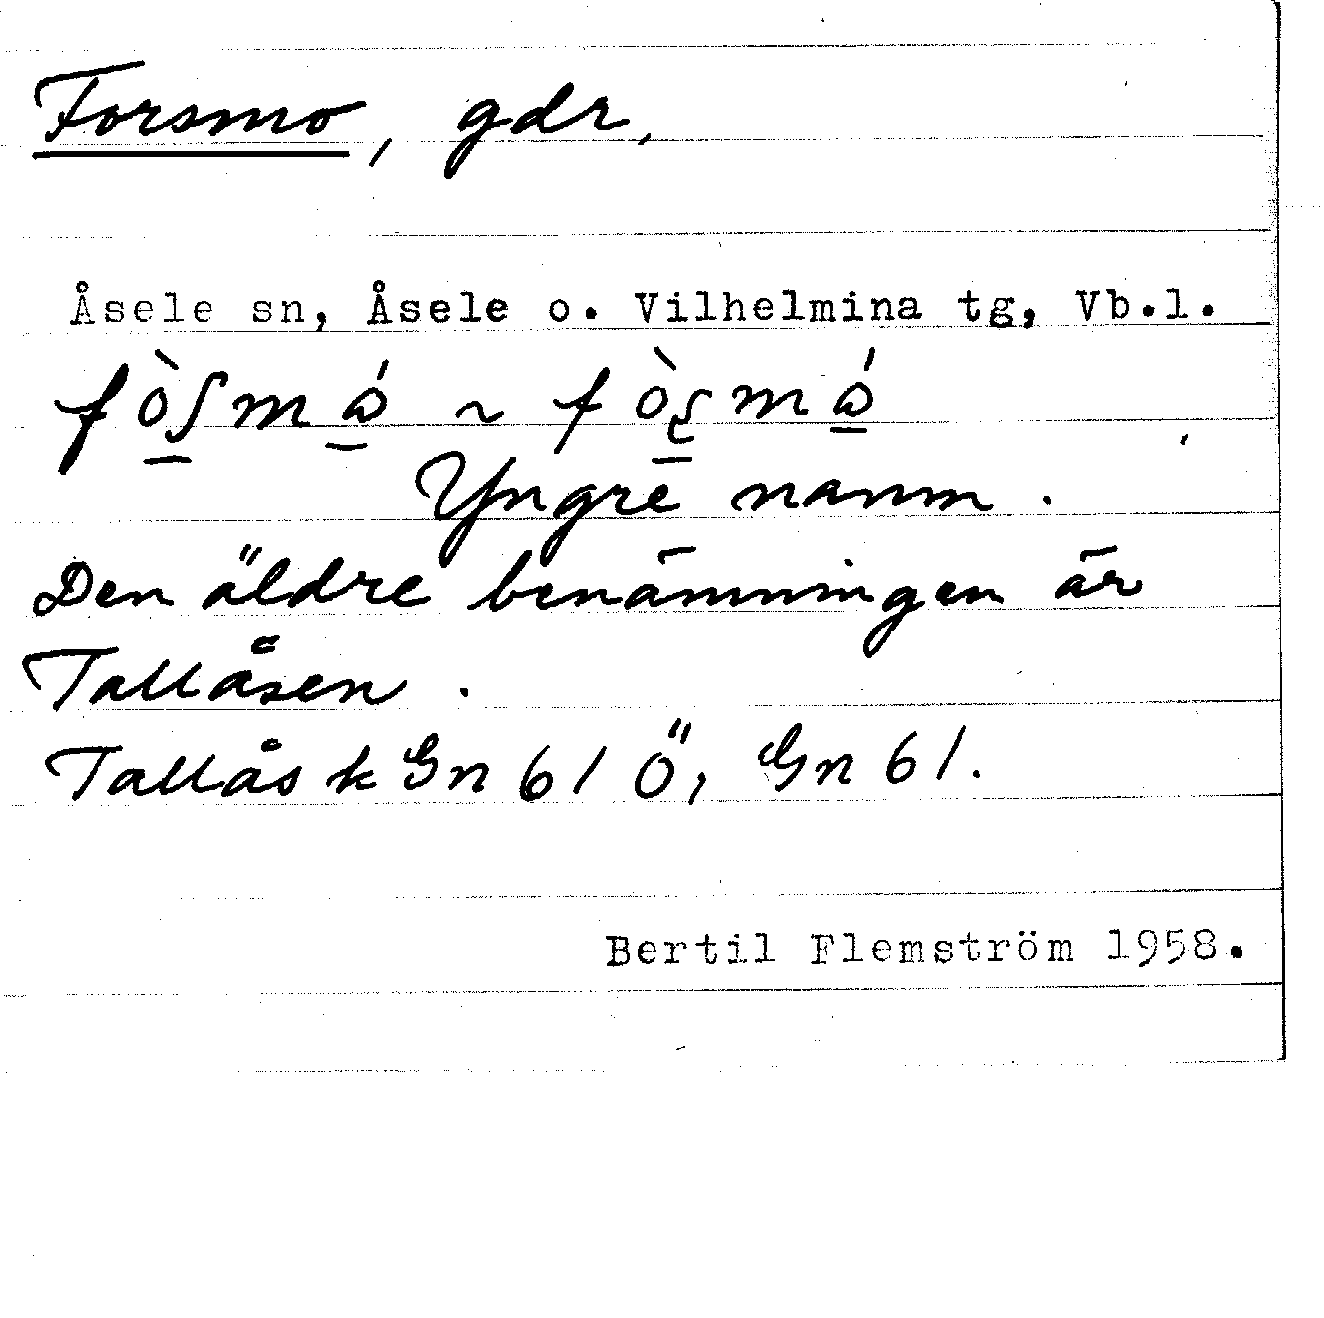 Forsmo, gdr,
Åsele sn, Åsele o. Vilhelmina tg, Vb.l.
Yngre namn.
Den äldre benämningen är
Tallåsen.
Tallås k Gn 61 Ö, Gn 61.
Bertil Flemström 1958.